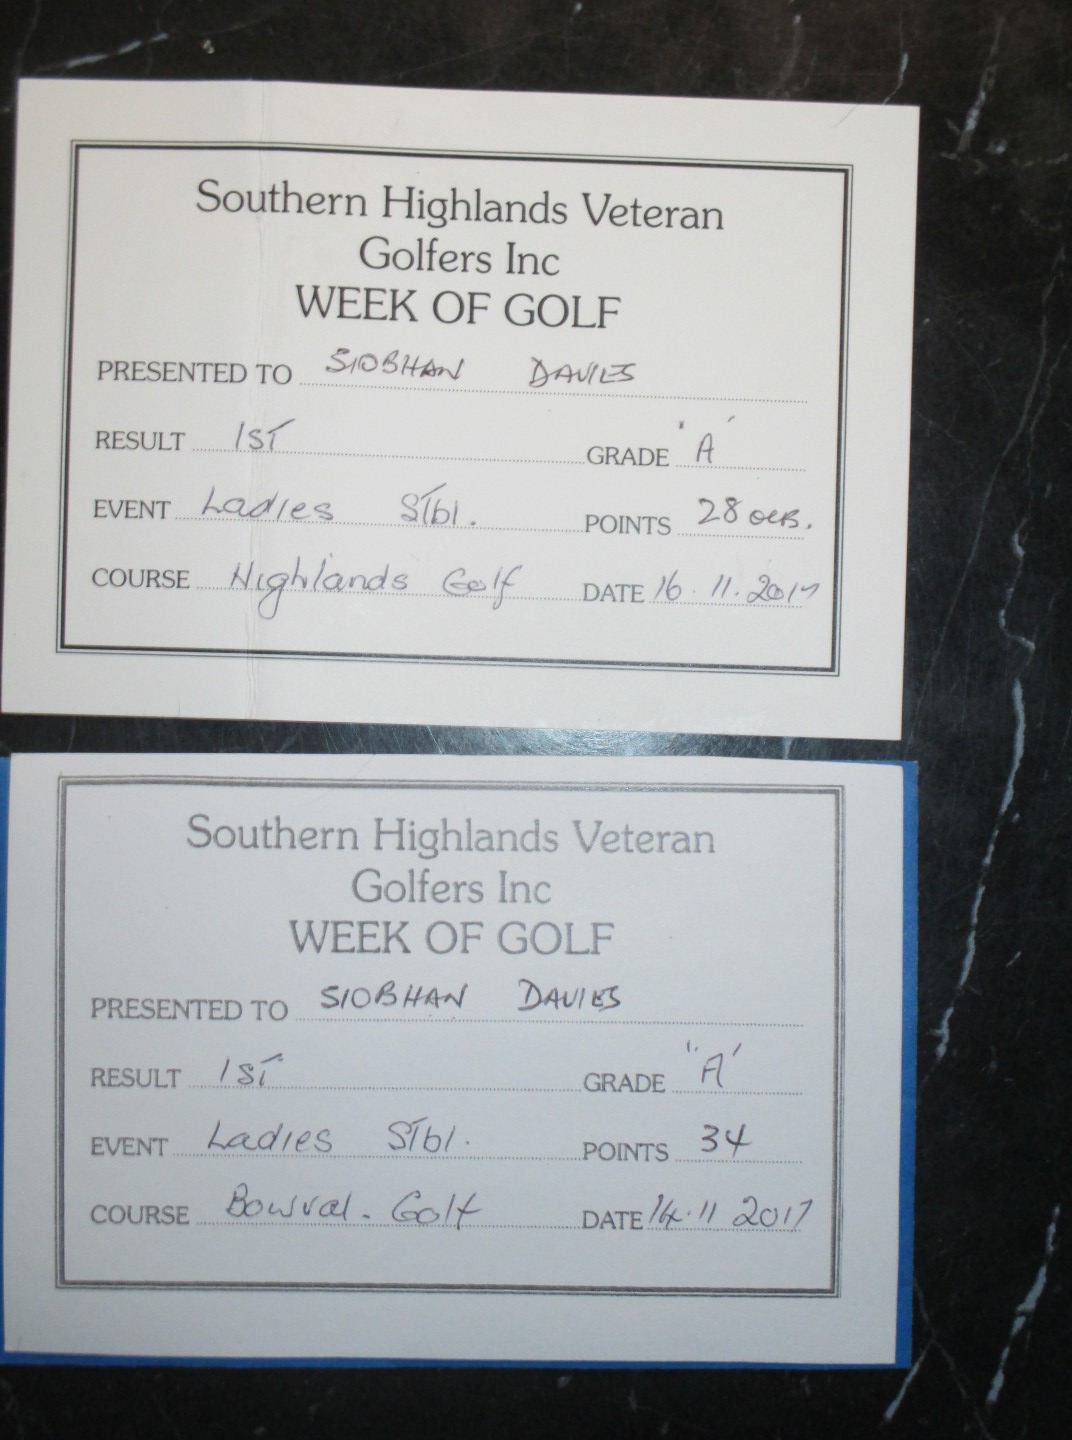 Southern Highlands Veteran
Golfers Inc
WEEK OF GOLF
PRESENTED TO SIOBHAN DAVIES
RESULT 1ST GRADE "A"
EVENT Ladies Stbl. POINTS 28 OCB.
COURSE Highlands Golf DATE 16.11.2017
Southern Highlands Veteran
Golfers Inc
WEEK OF GOLF
PRESENTED TO SIOBHAN DAVIES
RESULT 1ST GRADE "A"
EVENT Ladies Stbl. POINTS 34
COURSE Bowral. Golf DATE 14.11 2017